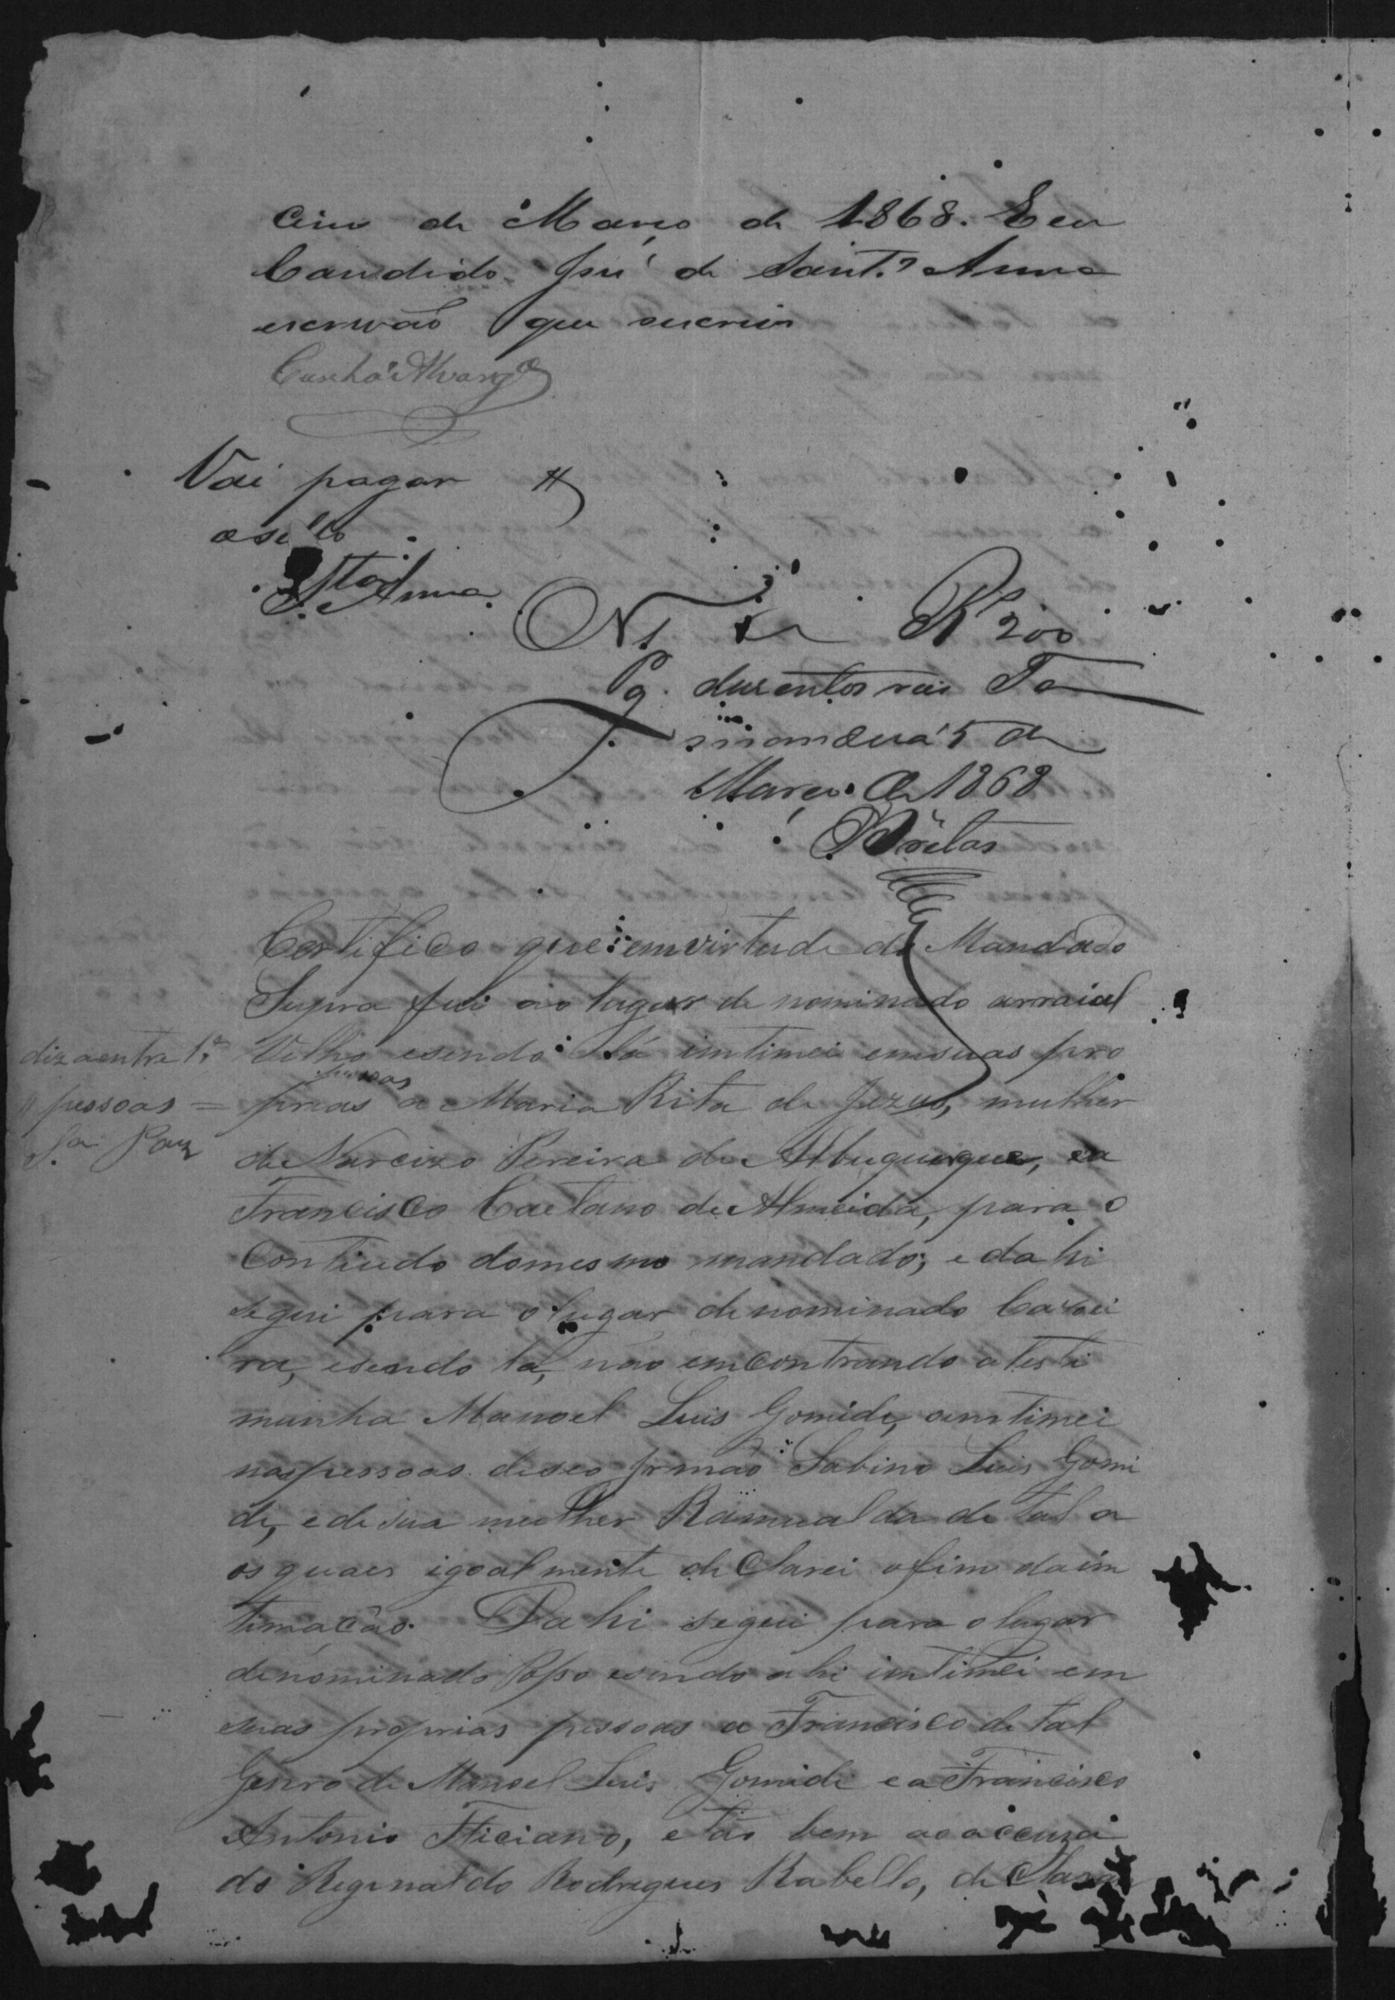 cinco de Março de 1868. Eu
Candido José de Sant.ª Anna
escrivão que escrevi
Cunha Alvarg
Vai pagar
o sello
Sta Anna
N 1 Rs 200
Pg. duzentos reis Ta
manduá 5 de
Março de 1868
Certifico que em virtude do Mandado
Supra fui ao lugar de nominado arraial
Velho esendo Lá intimei emsuas pro
dizaentra l.ª
pessoas =
pessoas
prias a Maria Rita de Jezus, mulher
de Narcizo Pereira de Albuquerque, ea
Francisco Caetano de Almeida, para o
Contiudo domesmo mandado; e dahi
segui para o lugar denominado Caxoei
ra, esendo la, não emcontrando a testi
munha Manoel Luis Gomide, aintimei
naspessoas deseo Irmão Sabino Luis Gomi
de, e desua mulher Ramualda de tal a
os quaes igoalmente de Clarei ofim daim
timação. Dahi segui para olugar
denominado esendo ahi intimei em
suas proprias pessoas a Francisco de tal
Genro de Manoel Luis Gomide e a Francisco
Antonio Ticiano, e tão bem ao acuza
do Reginaldo Rodrigues Rabello, de